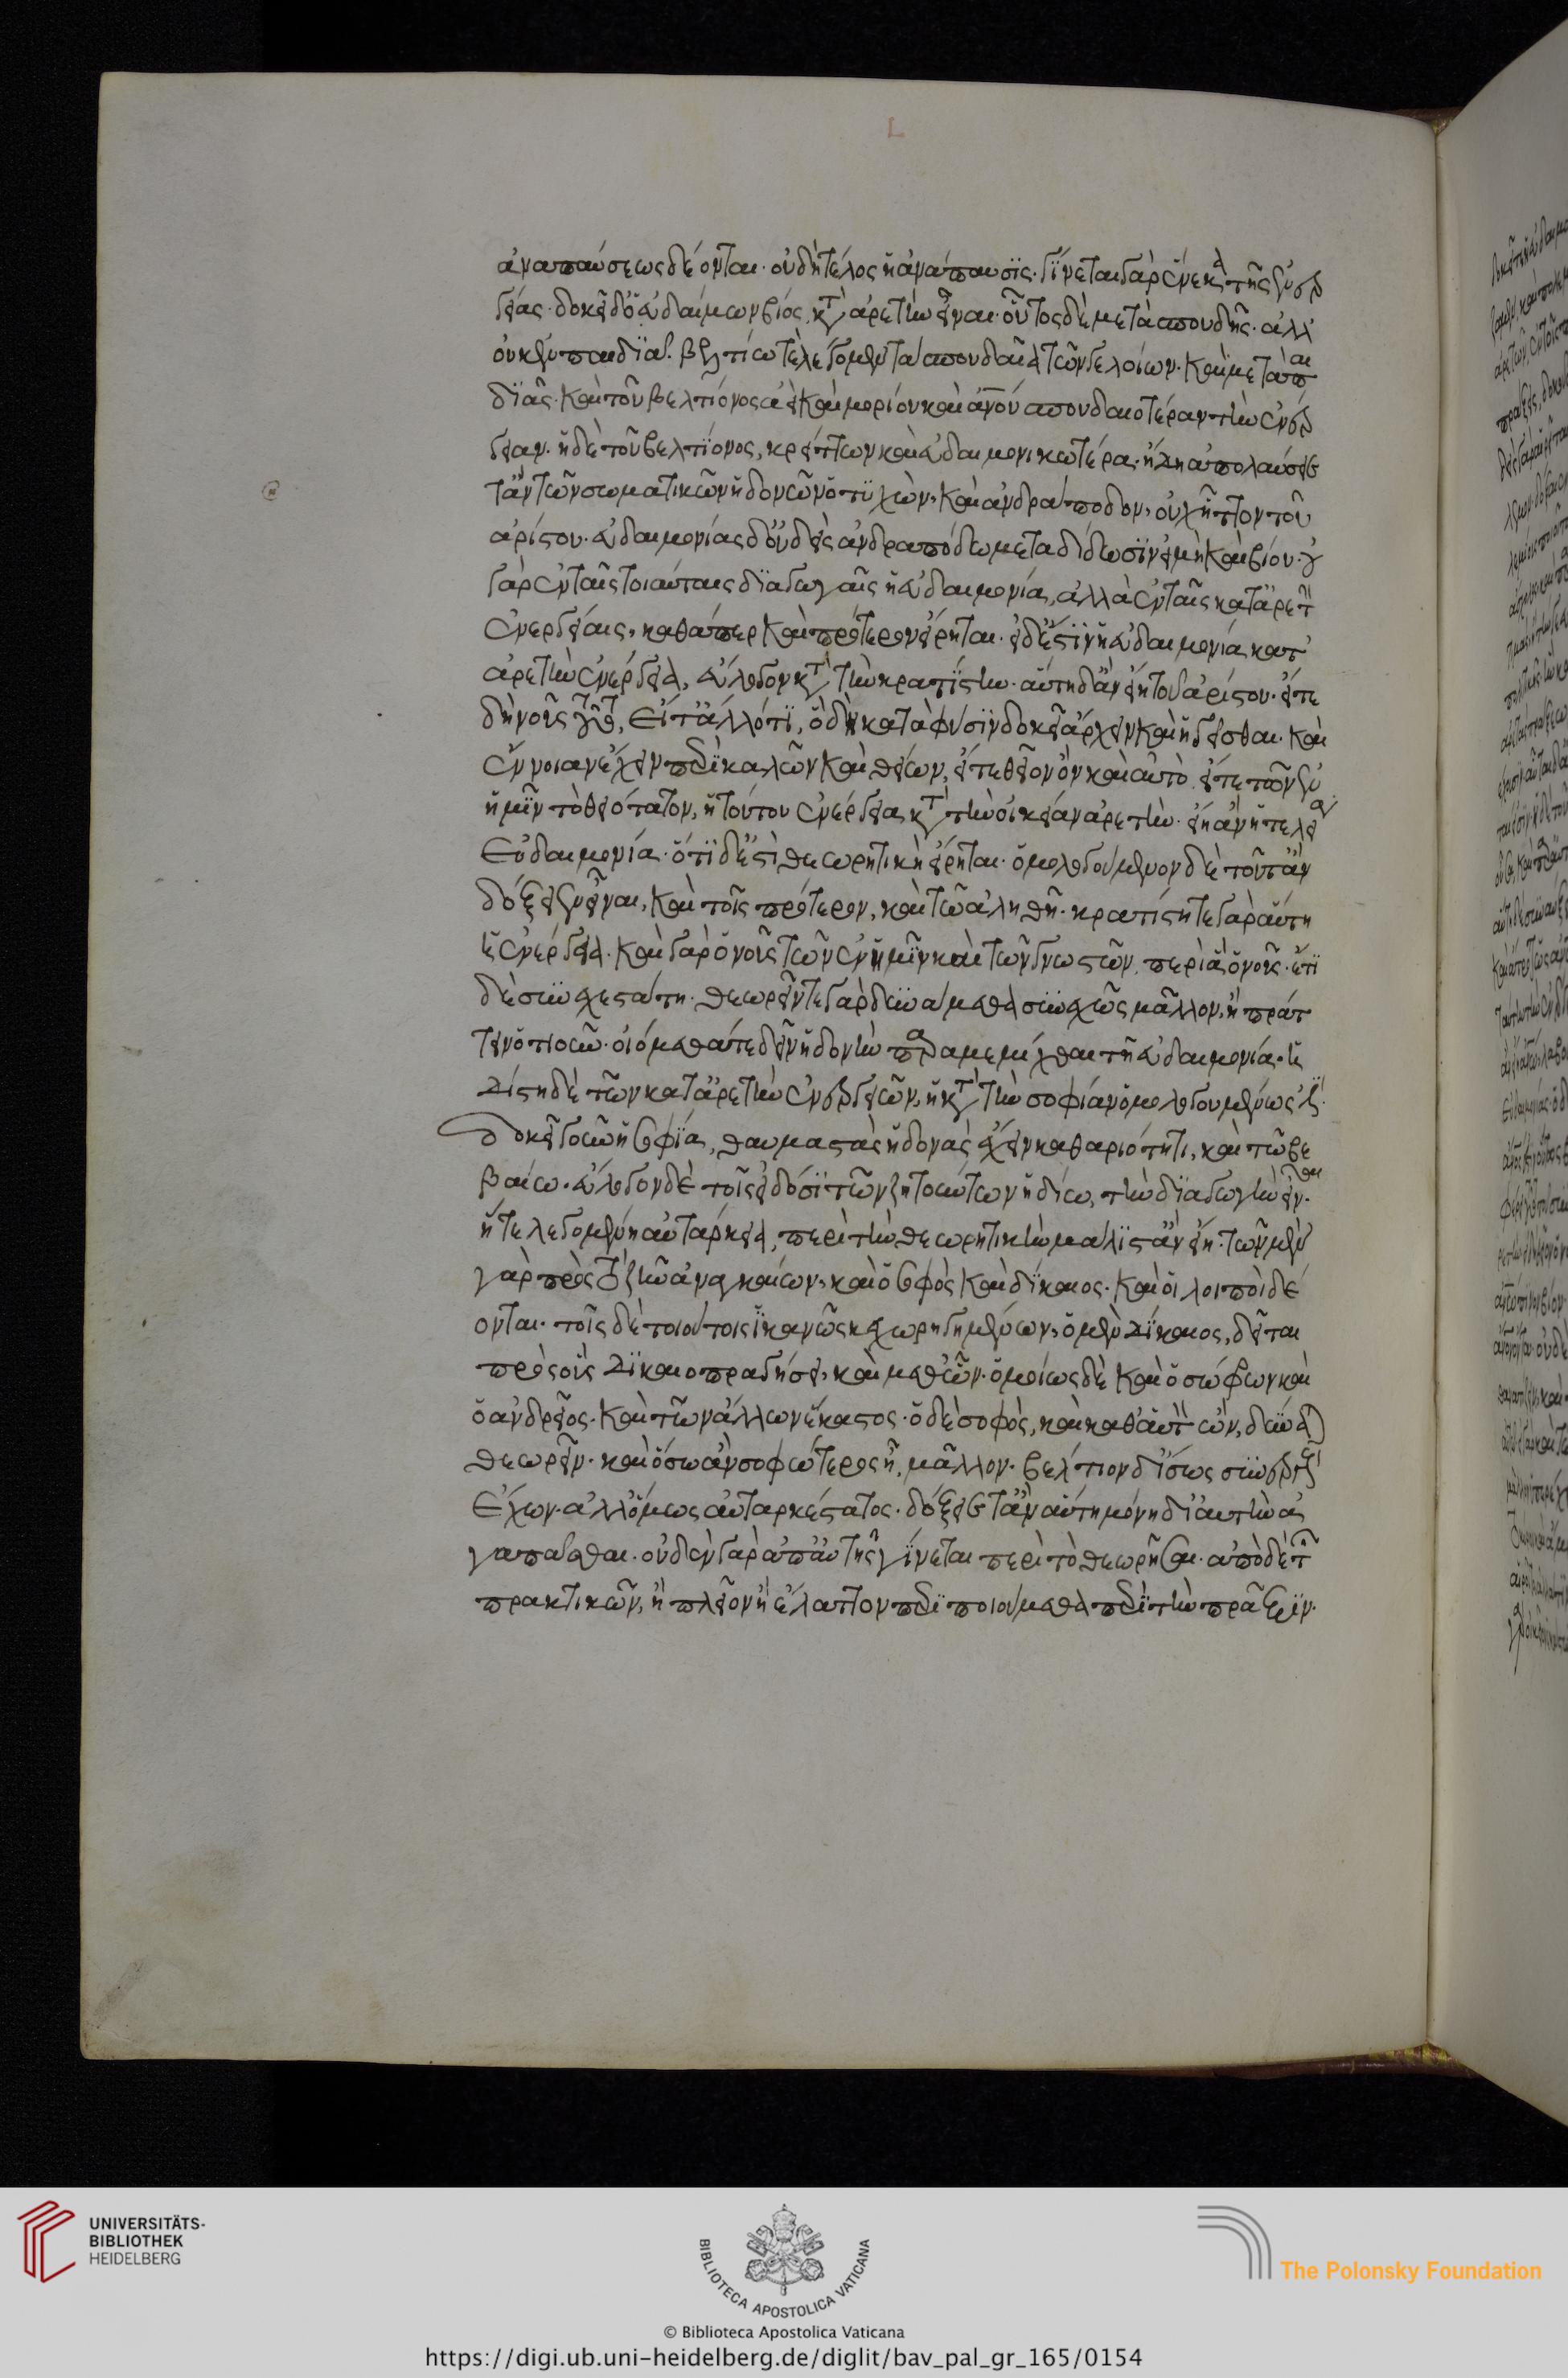 ἀναπαύσεως δέονται· οὐ δὴ τέλος ἡ ἀνάπαυσις· γίνεται γὰρ ἕνεκα τῆς ἐνερ
γείας· δοκεῖ δ' ὁ εὐδαίμων βίος, κατ' ἀρετὴν εἶναι· οὗτος δὲ μετὰ σπουδῆς· ἀλλ'
οὐκ ἐν παιδιᾷ· βελτίω τε λέγομεν τὰ σπουδαῖα τῶν γελοίων· καὶ μετὰ παι
διᾶς· καὶ τοῦ βελτίονος ἀεὶ καὶ μορίου καὶ ἀνου σπουδαιοτέραν τὴν ἐνέρ
γειαν· ἡ δὲ τοῦ βελτίονος, κρείττων καὶ εὐδαιμονικωτέρα· ἤδη ἀπολαύσειε
τ' ἂν τῶν σωματικῶν ἡδονῶν ὁ τυχὼν, καὶ ἀνδράποδον, οὐχ ἧττον τοῦ
ἀρίστου· εὐδαιμονίας δ' οὐδεὶς ἀνδραπόδῳ μεταδίδωσιν εἰ μὴ καὶ βίου· οὐ
γὰρ ἐν ταῖς τοιαύταις διαγωγαῖς ἡ εὐδαιμονία, ἀλλὰ ἐν ταῖς κατ' ἀρετὴν
ἐνεργείαις, καθάπερ καὶ πρότερον εἴρηται· εἰ δ' ἐστὶν ἡ εὐδαιμονία κατ'
ἀρετὴν ἐνέργεια, εὔλογον κατὰ τὴν κρατίστην· αὕτη δ' ἂν εἴη τοῦ ἀρίστου· εἴτε
δὴ νοῦς τοῦτο, εἴτ' ἄλλό τι, ὃ δὴ κατὰ φύσιν δοκεῖ ἄρχειν καὶ ἡγεῖσθαι· καὶ
ἔννοιαν ἔχειν περὶ καλῶν καὶ θείων, εἴτε θεῖον ὂν καὶ αὐτὸ· εἴτε τῶν ἐν
ἡμῖν τὸ θειότατον, ἡ τούτου ἐνέργεια κατὰ τὴν οἰκείαν ἀρετὴν· εἴη ἂν ἡ τελεία
Εὐδαιμονία· ὅτι δ' ἐστὶ θεωρητικὴ εἴρηται· ὁμολογούμενον δὲ τοῦτ' ἂν
δόξειεν εἶναι, καὶ τοῖς πρότερον, καὶ τῷ ἀληθῆ· κρατίστη τε γὰρ αὕτη
ἡ ἐνέργεια· καὶ γὰρ ὁ νοῦς τῶν ἐν ἡμῖν καὶ τῶν γνωστῶν, περὶ ἃ ὁ νοῦς· ἔτι
δὲ συνεχεστάτη· θεωρεῖν τε γὰρ δυνάμεθα συνεχῶς μᾶλλον, ἢ πράτ
τειν ὁτιοῦν· οἰόμεθά τε δεῖν ἡδονὴν παραμεμίχθαι τῇ εὐδαιμονίᾳ· ἡ
δίστη δὲ τῶν κατ' ἀρετὴν ἐνεργειῶν, ἡ κατὰ τὴν σοφίαν ὁμολογουμένως ἐστί·
δοκεῖ γοῦν ἡ σοφία, θαυμαστὰς ἡδονὰς ἔχειν καθαριότητι, καὶ τῷ βε
βαίῳ· εὔλογον δὲ τοῖς εἰδόσι τῶν ζητούντων ἡδίω, τὴν διαγωγὴν εἶναι·
ἥ τε λεγομένη αὐτάρκεια, περὶ τὴν θεωρητικὴν μάλιστ' ἂν εἴη· τῶν μὲν
γὰρ πρὸς τὸ ζῆν ἀναγκαίων, καὶ ὁ σοφὸς καὶ δίκαιος· καὶ οἱ λοιποὶ δέ
ονται· τοῖς δὲ τοιούτοις ἱκανῶς κεχωρηγημένων, ὁ μὲν δίκαιος, δεῖται
πρὸς οὓς δικαιοπραγήσει, καὶ μεθ' ὧν· ὁμοίως δὲ καὶ ὁ σώφρων καὶ
ὁ ἀνδρεῖος· καὶ τῶν ἄλλων ἕκαστος· ὁ δὲ σοφὸς, καὶ καθ' αὑτὸν ὢν, δύναται
θεωρεῖν· καὶ ὅσῳ ἂν σοφώτερος ᾖ, μᾶλλον· βέλτιον δ' ἴσως συνεργοὺς
Ἔχων· ἀλλ' ὅμως αὐταρκέστατος· δόξειε τ' ἂν αὐτὴ μόνη δι' αὑτὴν ἀ
γαπᾶσθαι· οὐδὲν γὰρ ἀπ' αὐτῆς γίνεται περὶ τὸ θεωρῆσαι· ἀπὸ δὲ τῶν
πρακτικῶν, ἢ πλεῖον ἢ ἔλαττον περιποιούμεθα περὶ τὴν πρᾶξιν·
UNIVERSITÄTS-
BIBLIOTHEK
HEIDELBERG
BIBLIOTECA APOSTOLICA VATICANA
The Polonsky Foundation
© Biblioteca Apostolica Vaticana
https://digi.ub.uni-heidelberg.de/diglit/bav_pal_gr_165/0154